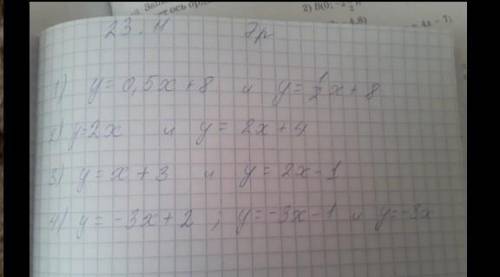 2) В(0;
23.11 Эр
1) y=0,5x+8 и y=½x+8
2) y=2x и y=2x+4
3) y=x+3 и y=2x-1
4) y=-3x+2 ; y=-3x-1 и y=-3x